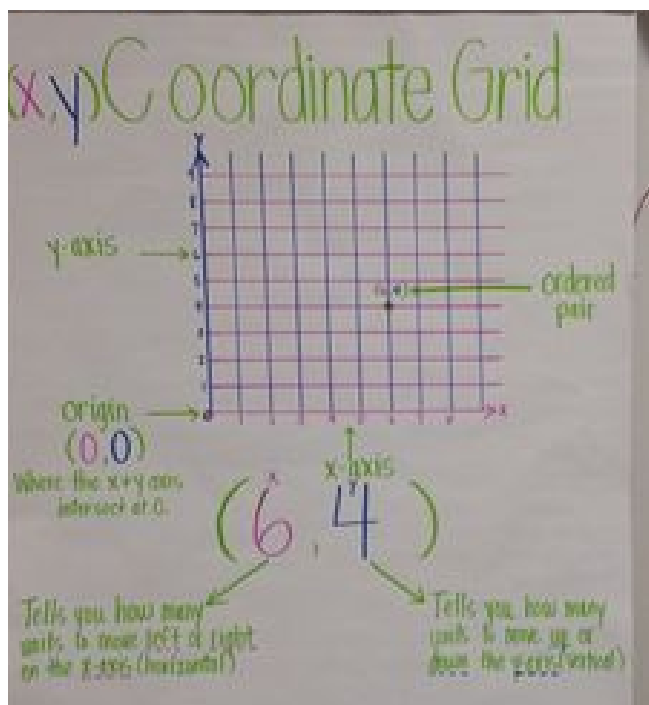 (x,y) Coordinate Grid
y
y-axis
(6,4)
ordered
pair
origin
(0,0)
x
x-axis
Where the x+y axis
intersect at 0.
x y
(6, 4)
Tells you how many
units to move left or right
on the x-axis (horizontal)
Tells you how many
units to move up or
down the y-axis (vertical)